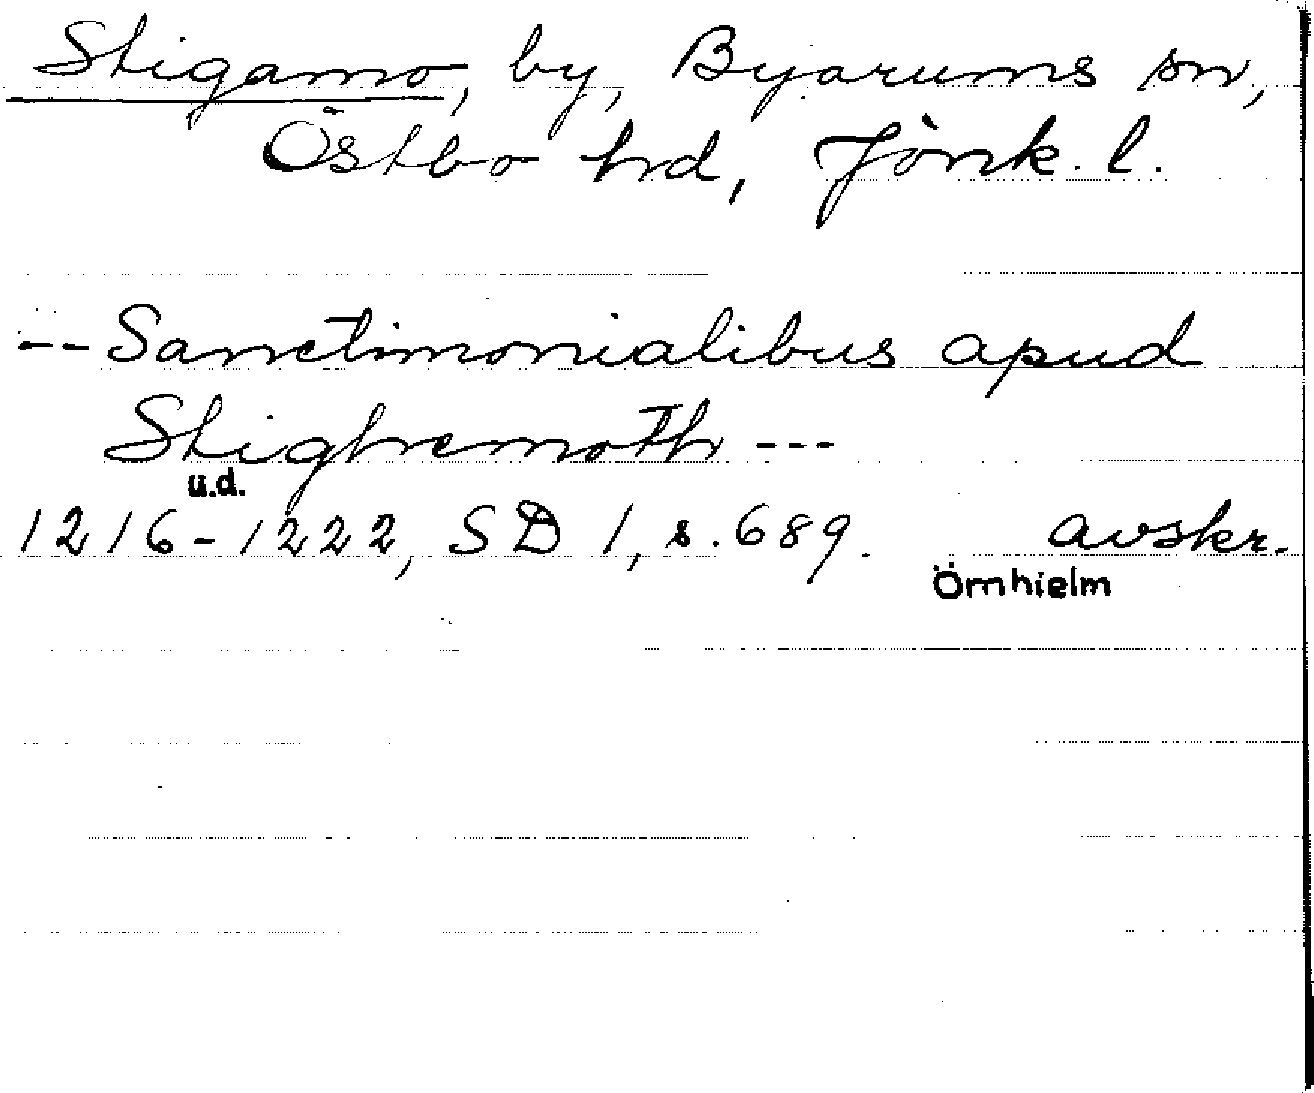 Stigamo, by, Byarums sn,
Östbo hd, Jönk. l.
-- Sanctimonialibus apud
Stighemoth ---
u.d.
1216-1222, SD 1, s. 689. avskr.
Örnhielm